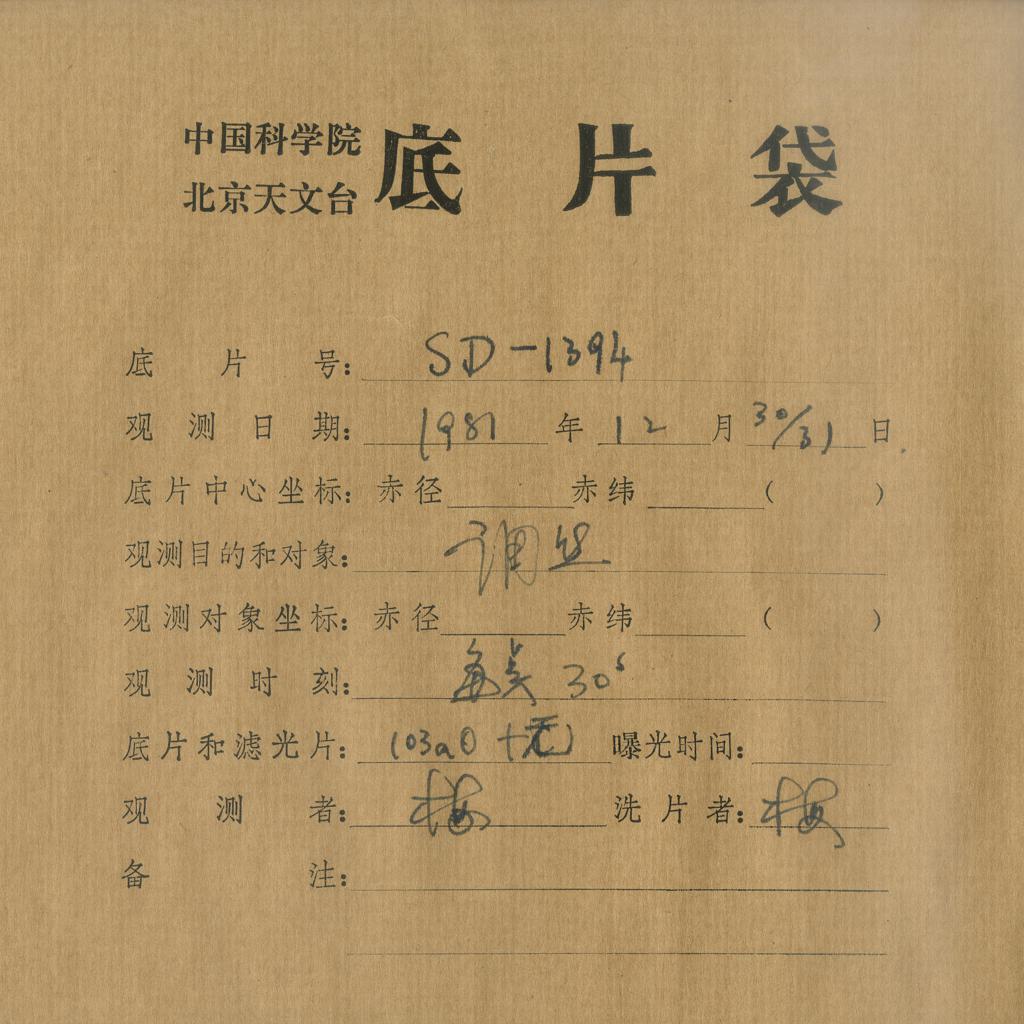 中国科学院
北京天文台
底片袋
底片号: SD-1394
观测日期: 1981年12月30/31日
底片中心坐标: 赤径 赤纬 ( )
观测目的和对象: 调丝
观测对象坐标: 赤径 赤纬 ( )
观测时刻: 每点 30s
底片和滤光片: 103aO+无 曝光时间:
观测者: 梅 洗片者: 梅
备注: